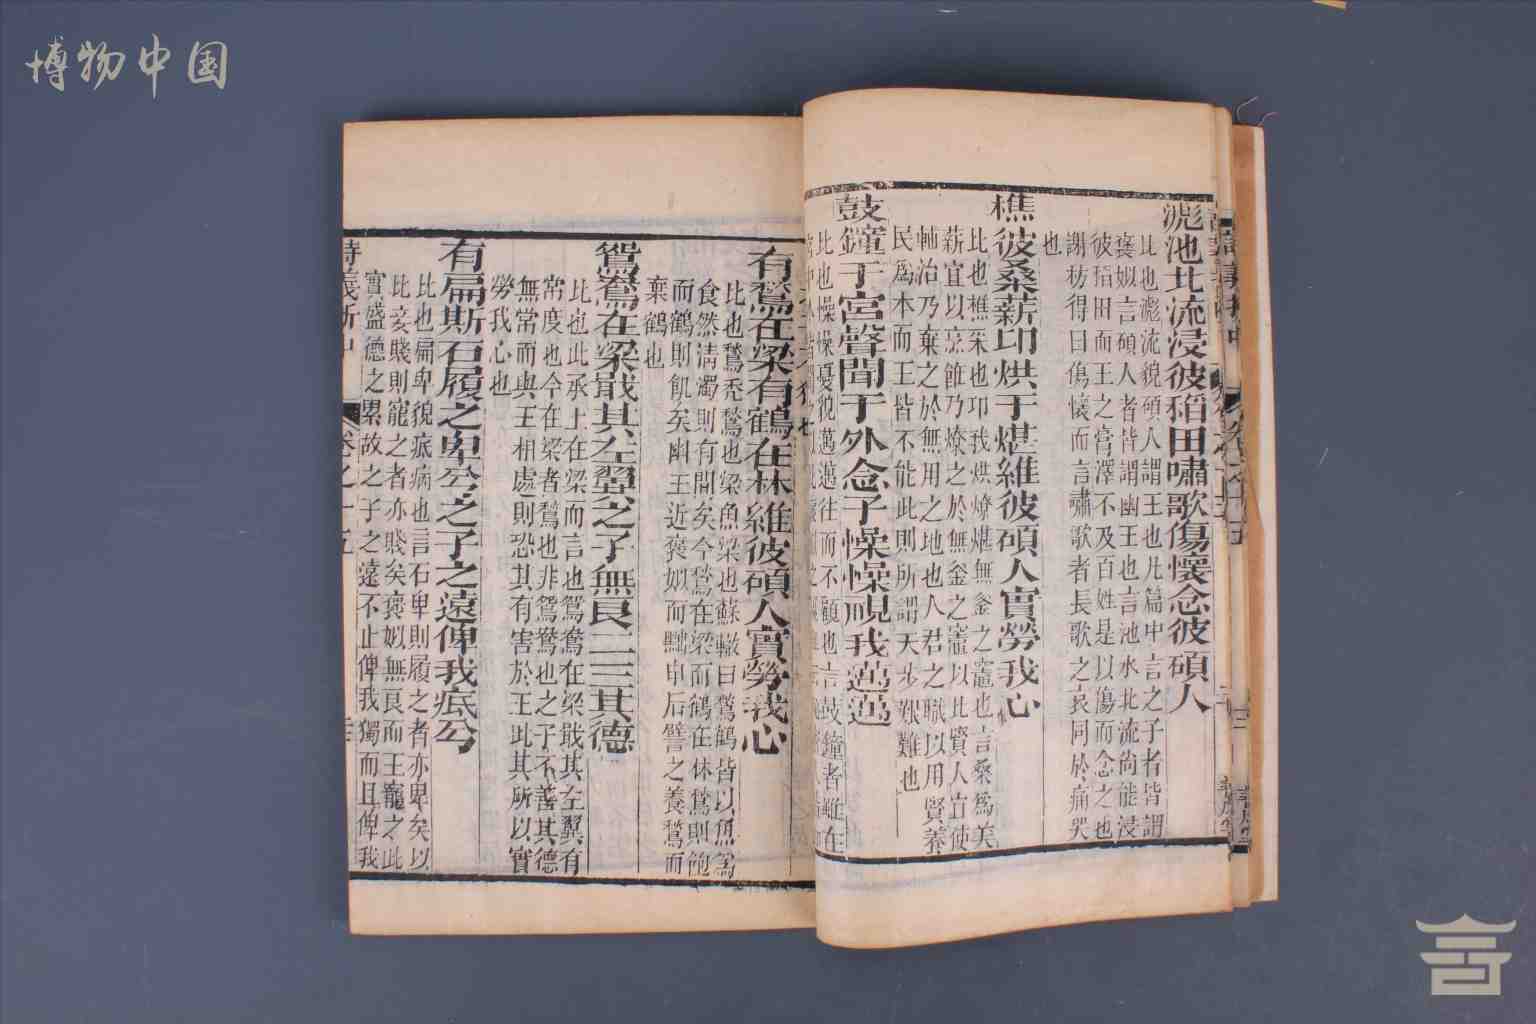 博物中国
滮池北流浸彼稻田嘯歌傷懷念彼碩人
比也滮流貌碩人謂王也凡篇中言之子者皆謂
褒姒言碩人者皆謂幽王也言池水北流尚能浸
彼稻田而王之膏澤不及百姓是以傷而念之也
謝枋得曰傷懷而言嘯歌者長歌之哀同於痛哭
也
樵彼桑薪卬烘于煁維彼碩人實勞我心
比也樵采也卬我烘燎煁無釜之竈也言桑爲美
薪宜以烹飪乃燎之於無釜之竈以比賢人宜使
輔治乃棄之於無用之地也人君之職以用賢養
民爲本而王皆不能此則所謂天步艱難也
鼓鐘于宮聲聞于外念子懆懆視我邁邁
比也懆懆憂貌邁邁往而不顧也言鼓鐘者雖在
有鶖在梁有鶴在林維彼碩人實勞我心
比也鶖禿鶖也梁魚梁也蘇轍曰鶖鶴皆以魚爲
食然清濁則有間矣今鶖在梁而鶴在林鶖則飽
而鶴則飢矣幽王近褒姒而黜申后譬之養鶖而
棄鶴也
鴛鴦在梁戢其左翼之子無良二三其德
比也此承上在梁而言也鴛鴦在梁戢其左翼有
常度也今在梁者鶖也非鴛鴦也之子不善其德
無常而與王相處則恐其有害於王此其所以實
勞我心也
有扁斯石履之卑兮之子之遠俾我疧兮
比也扁卑貌疧病也言石卑則履之者亦卑矣以
比妾賤則寵之者亦賤矣褒姒無良而王寵之此
實盛德之累故之子之遠不止俾我獨而且俾我
詩義折中
卷之十五